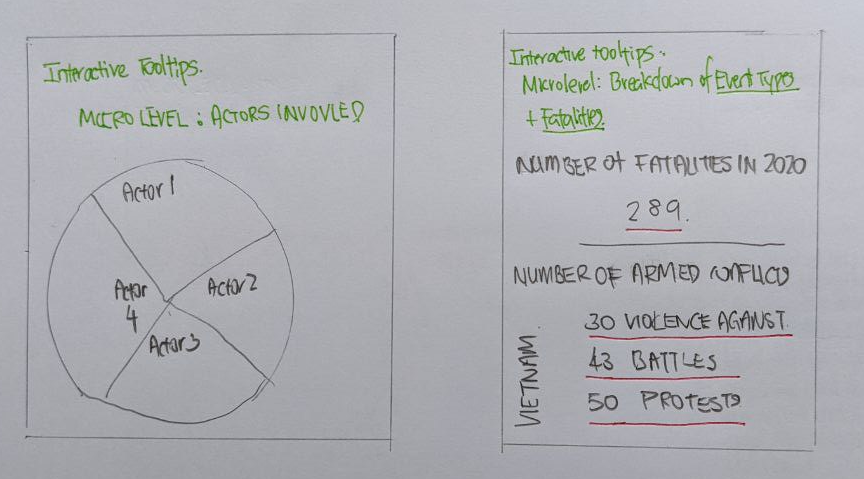 Interactive Tooltips.
MICRO LEVEL : ACTORS INVOVLED
Actor 1
Actor 2
Actor
4
Actor 3
Interactive tooltips.
Microlevel: Breakdown of Event Types
+ Fatalities
NUMBER of FATALITIES IN 2020
289.
NUMBER OF ARMED CONFLICTS
VIETNAM.
30 VIOLENCE AGAINST.
43 BATTLES
50 PROTESTS